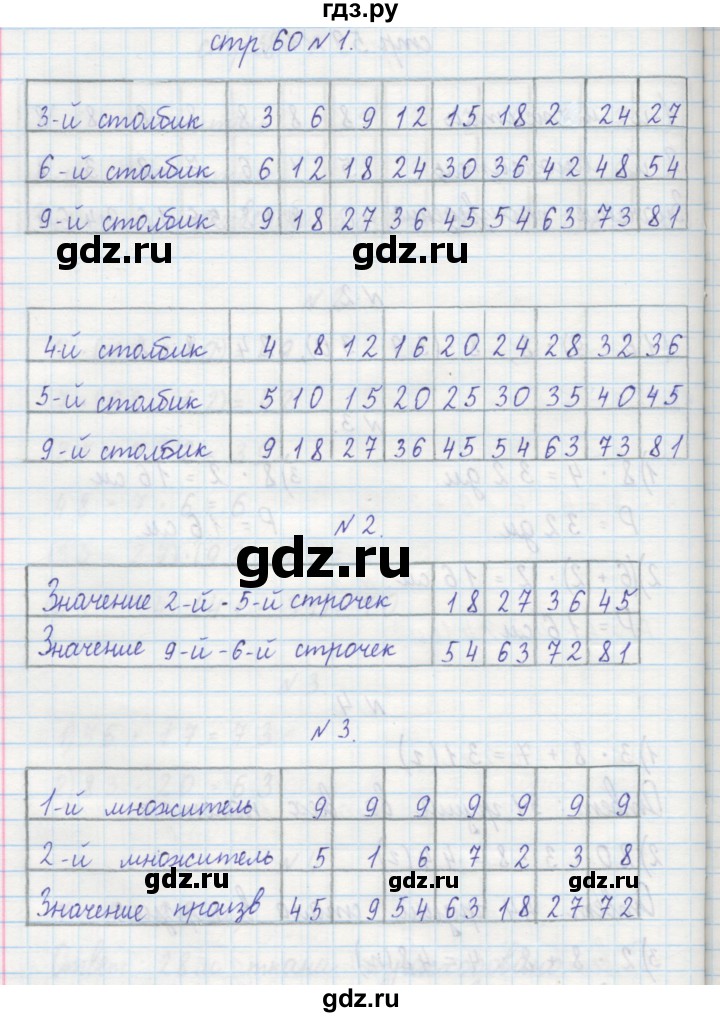 гдз.ру
стр 60 N 1.
3-й столбик 3 6 9 12 15 18 2 24 27
6-й столбик 6 12 18 24 30 36 42 48 54
9-й столбик 9 18 27 36 45 54 63 73 81
gdz.ru gdz.ru
4-й столбик 4 8 12 16 20 24 28 32 36
5-й столбик 5 10 15 20 25 30 35 40 45
9-й столбик 9 18 27 36 45 54 63 73 81
N 2.
gdz.ru
Значение 2-й - 5-й строчек 18 27 36 45
Значение 9-й - 6-й строчек 54 63 72 81
N 3.
1-й множитель 9 9 9 9 9 9 9
2-й множитель 5 1 6 7 2 3 8
gdz.ru gdz.ru gdz.ru
Значение произв 45 9 54 63 18 27 72
gdz.ru